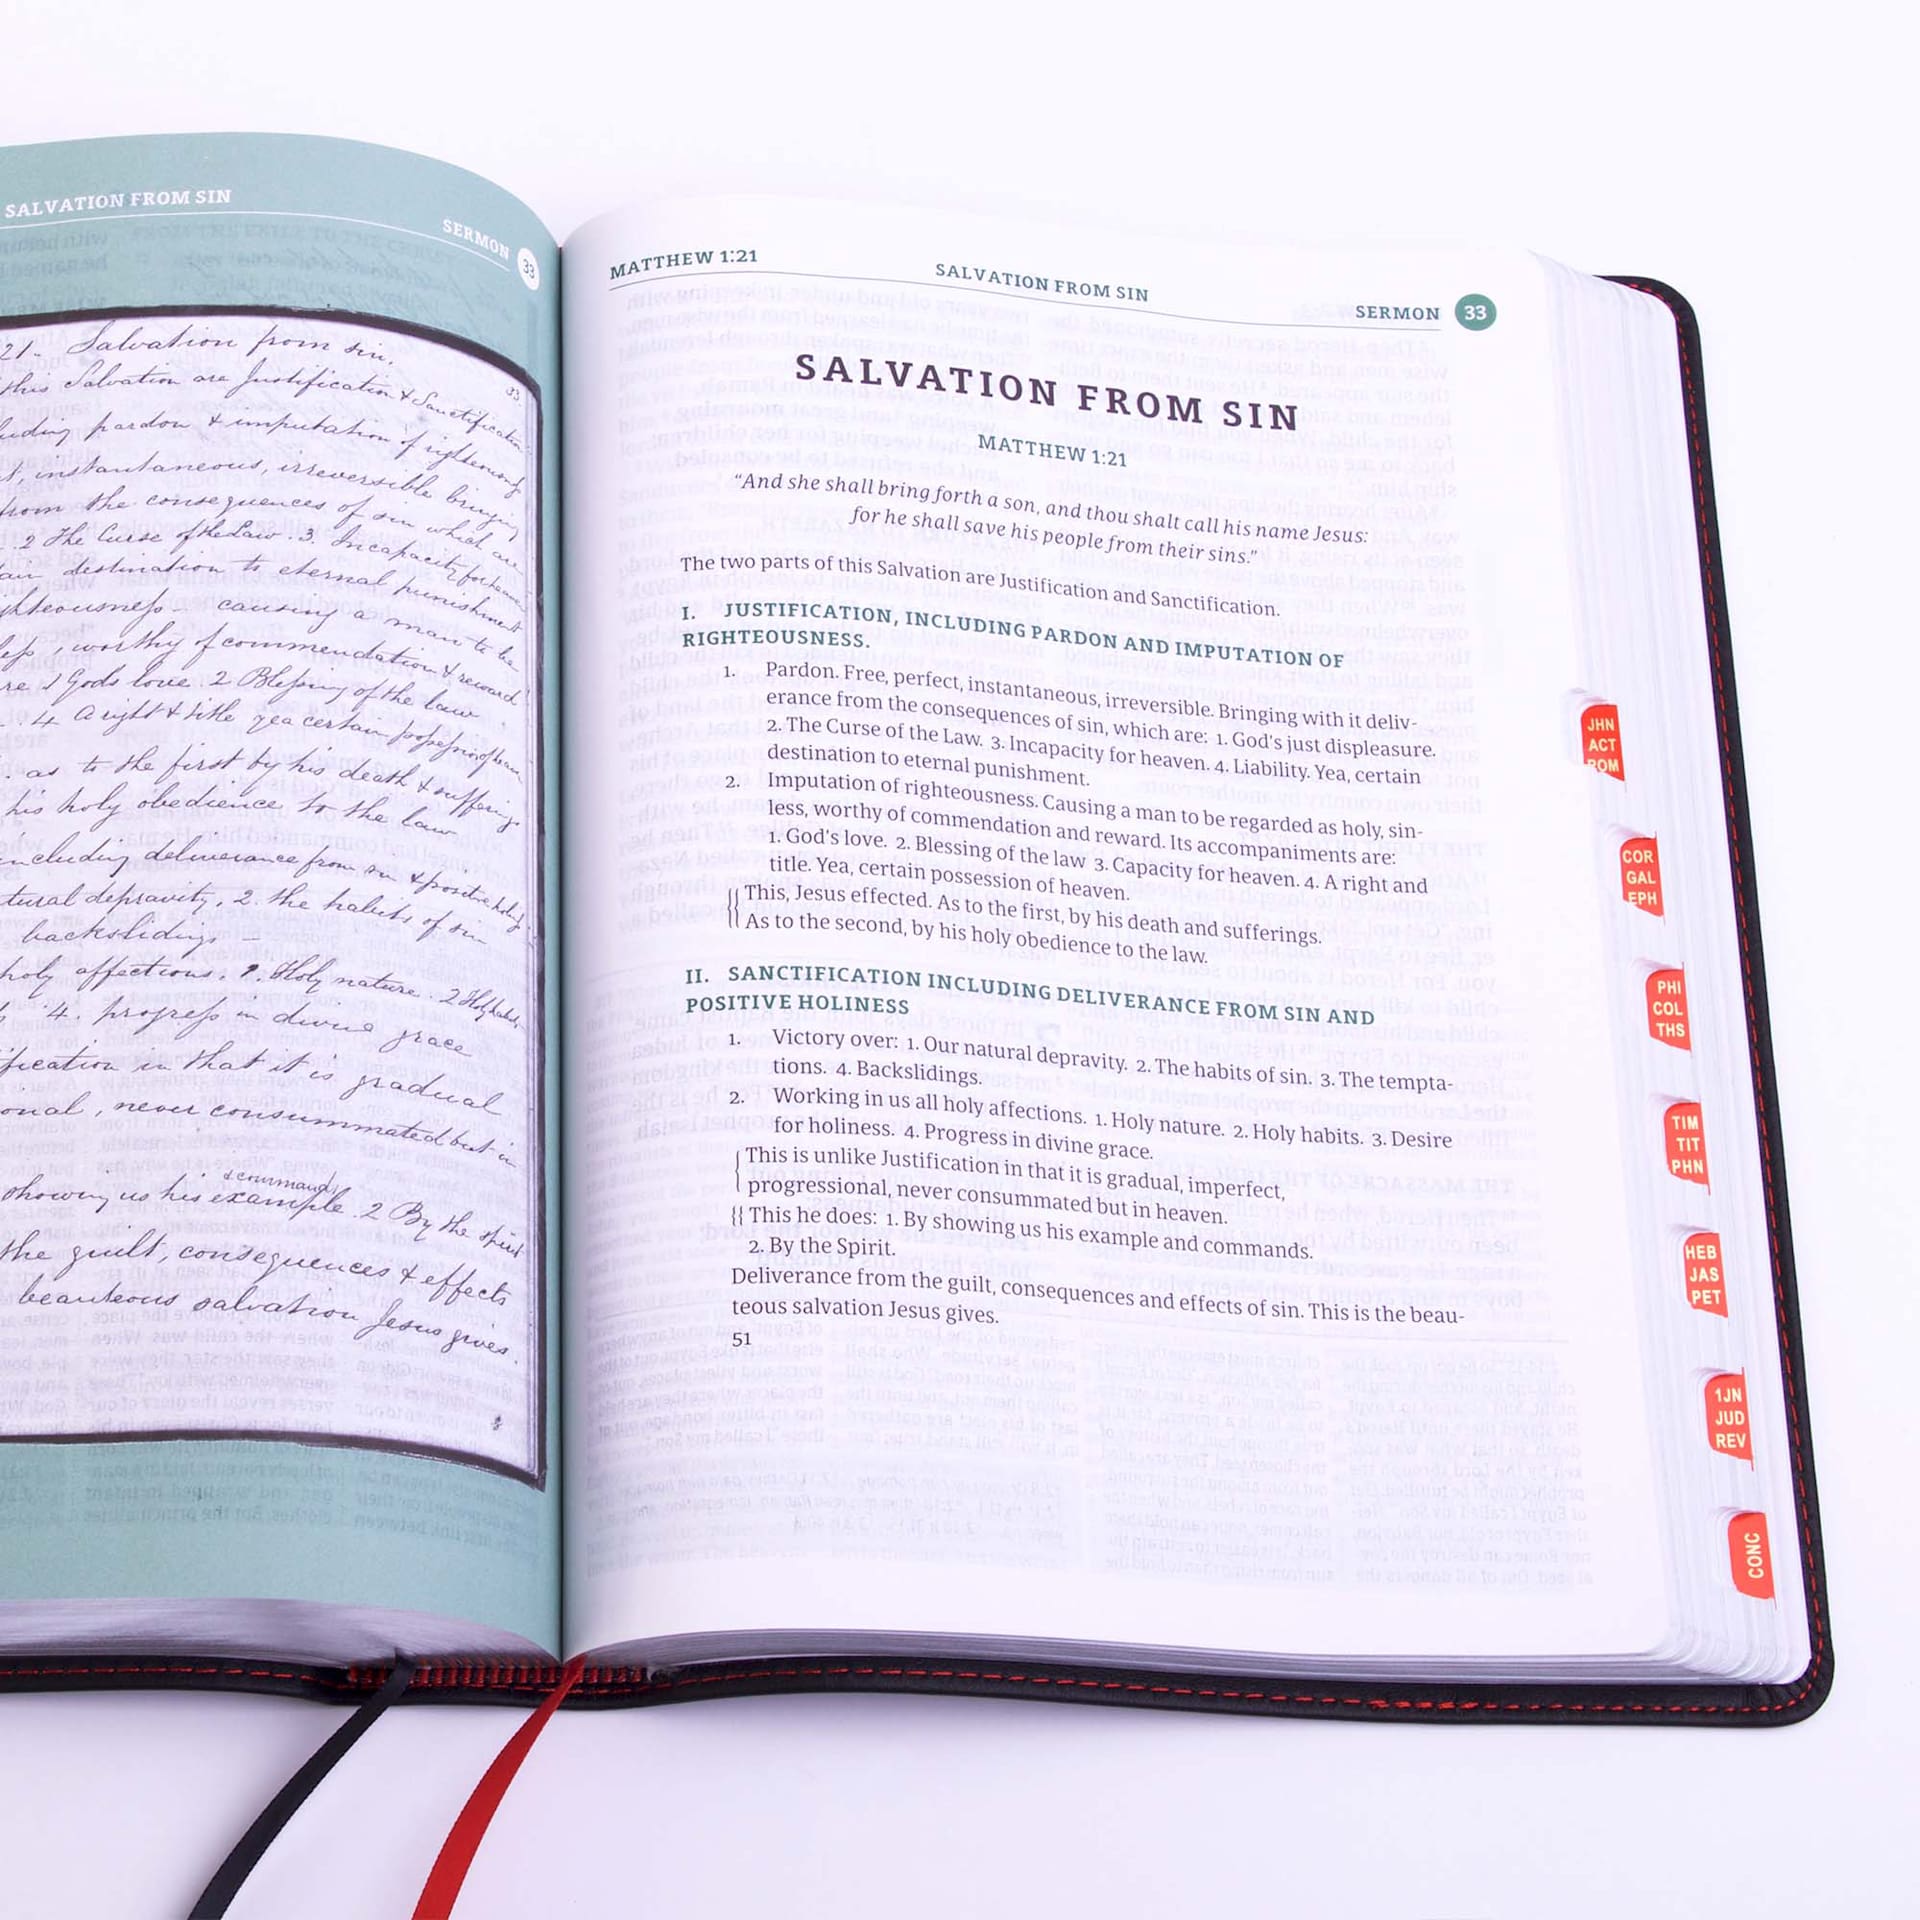 SALVATION FROM SIN
SERMON 33
21. Salvation from sin.
33
this Salvation are Justification & Sanctification
pardon & imputation of righteousness
instantaneous, irreversible bringing
from the consequences of sin which are
2 The Curse of the Law. 3. Incapacity for heaven
destination to eternal punishment
causing a man to be
worthy of commendation & reward
1 Gods love. 2 Blessing of the law
4 A right & title, yea certain possession of heaven
as to the first by his death & sufferings
his holy obedience to the law
including deliverance from sin & positive holiness
depravity. 2. The habits of sin
backslidings
holy affections. 1. Holy nature. 2 Holy habits
4. progress in divine grace
in that it is gradual
never consummated but in
& commands
showing us his example. 2 By the spirit
the guilt consequences & effects
beauteous salvation Jesus gives.
MATTHEW 1:21
SALVATION FROM SIN
SERMON 33
SALVATION FROM SIN
MATTHEW 1:21
“And she shall bring forth a son, and thou shalt call his name Jesus:
for he shall save his people from their sins.”
The two parts of this Salvation are Justification and Sanctification.
I. JUSTIFICATION, INCLUDING PARDON AND IMPUTATION OF
RIGHTEOUSNESS.
1. Pardon. Free, perfect, instantaneous, irreversible. Bringing with it deliv-
erance from the consequences of sin, which are: 1. God’s just displeasure.
2. The Curse of the Law. 3. Incapacity for heaven. 4. Liability. Yea, certain
destination to eternal punishment.
2. Imputation of righteousness. Causing a man to be regarded as holy, sin-
less, worthy of commendation and reward. Its accompaniments are:
1. God’s love. 2. Blessing of the law 3. Capacity for heaven. 4. A right and
title. Yea, certain possession of heaven.
{{ This, Jesus effected. As to the first, by his death and sufferings.
As to the second, by his holy obedience to the law.
II. SANCTIFICATION INCLUDING DELIVERANCE FROM SIN AND
POSITIVE HOLINESS
1. Victory over: 1. Our natural depravity. 2. The habits of sin. 3. The tempta-
tions. 4. Backslidings.
2. Working in us all holy affections. 1. Holy nature. 2. Holy habits. 3. Desire
for holiness. 4. Progress in divine grace.
{ This is unlike Justification in that it is gradual, imperfect,
progressional, never consummated but in heaven.
{{ This he does: 1. By showing us his example and commands.
2. By the Spirit.
Deliverance from the guilt, consequences and effects of sin. This is the beau-
teous salvation Jesus gives.
51
JHN
ACT
ROM
COR
GAL
EPH
PHI
COL
THS
TIM
TIT
PHN
HEB
JAS
PET
1JN
JUD
REV
CONC